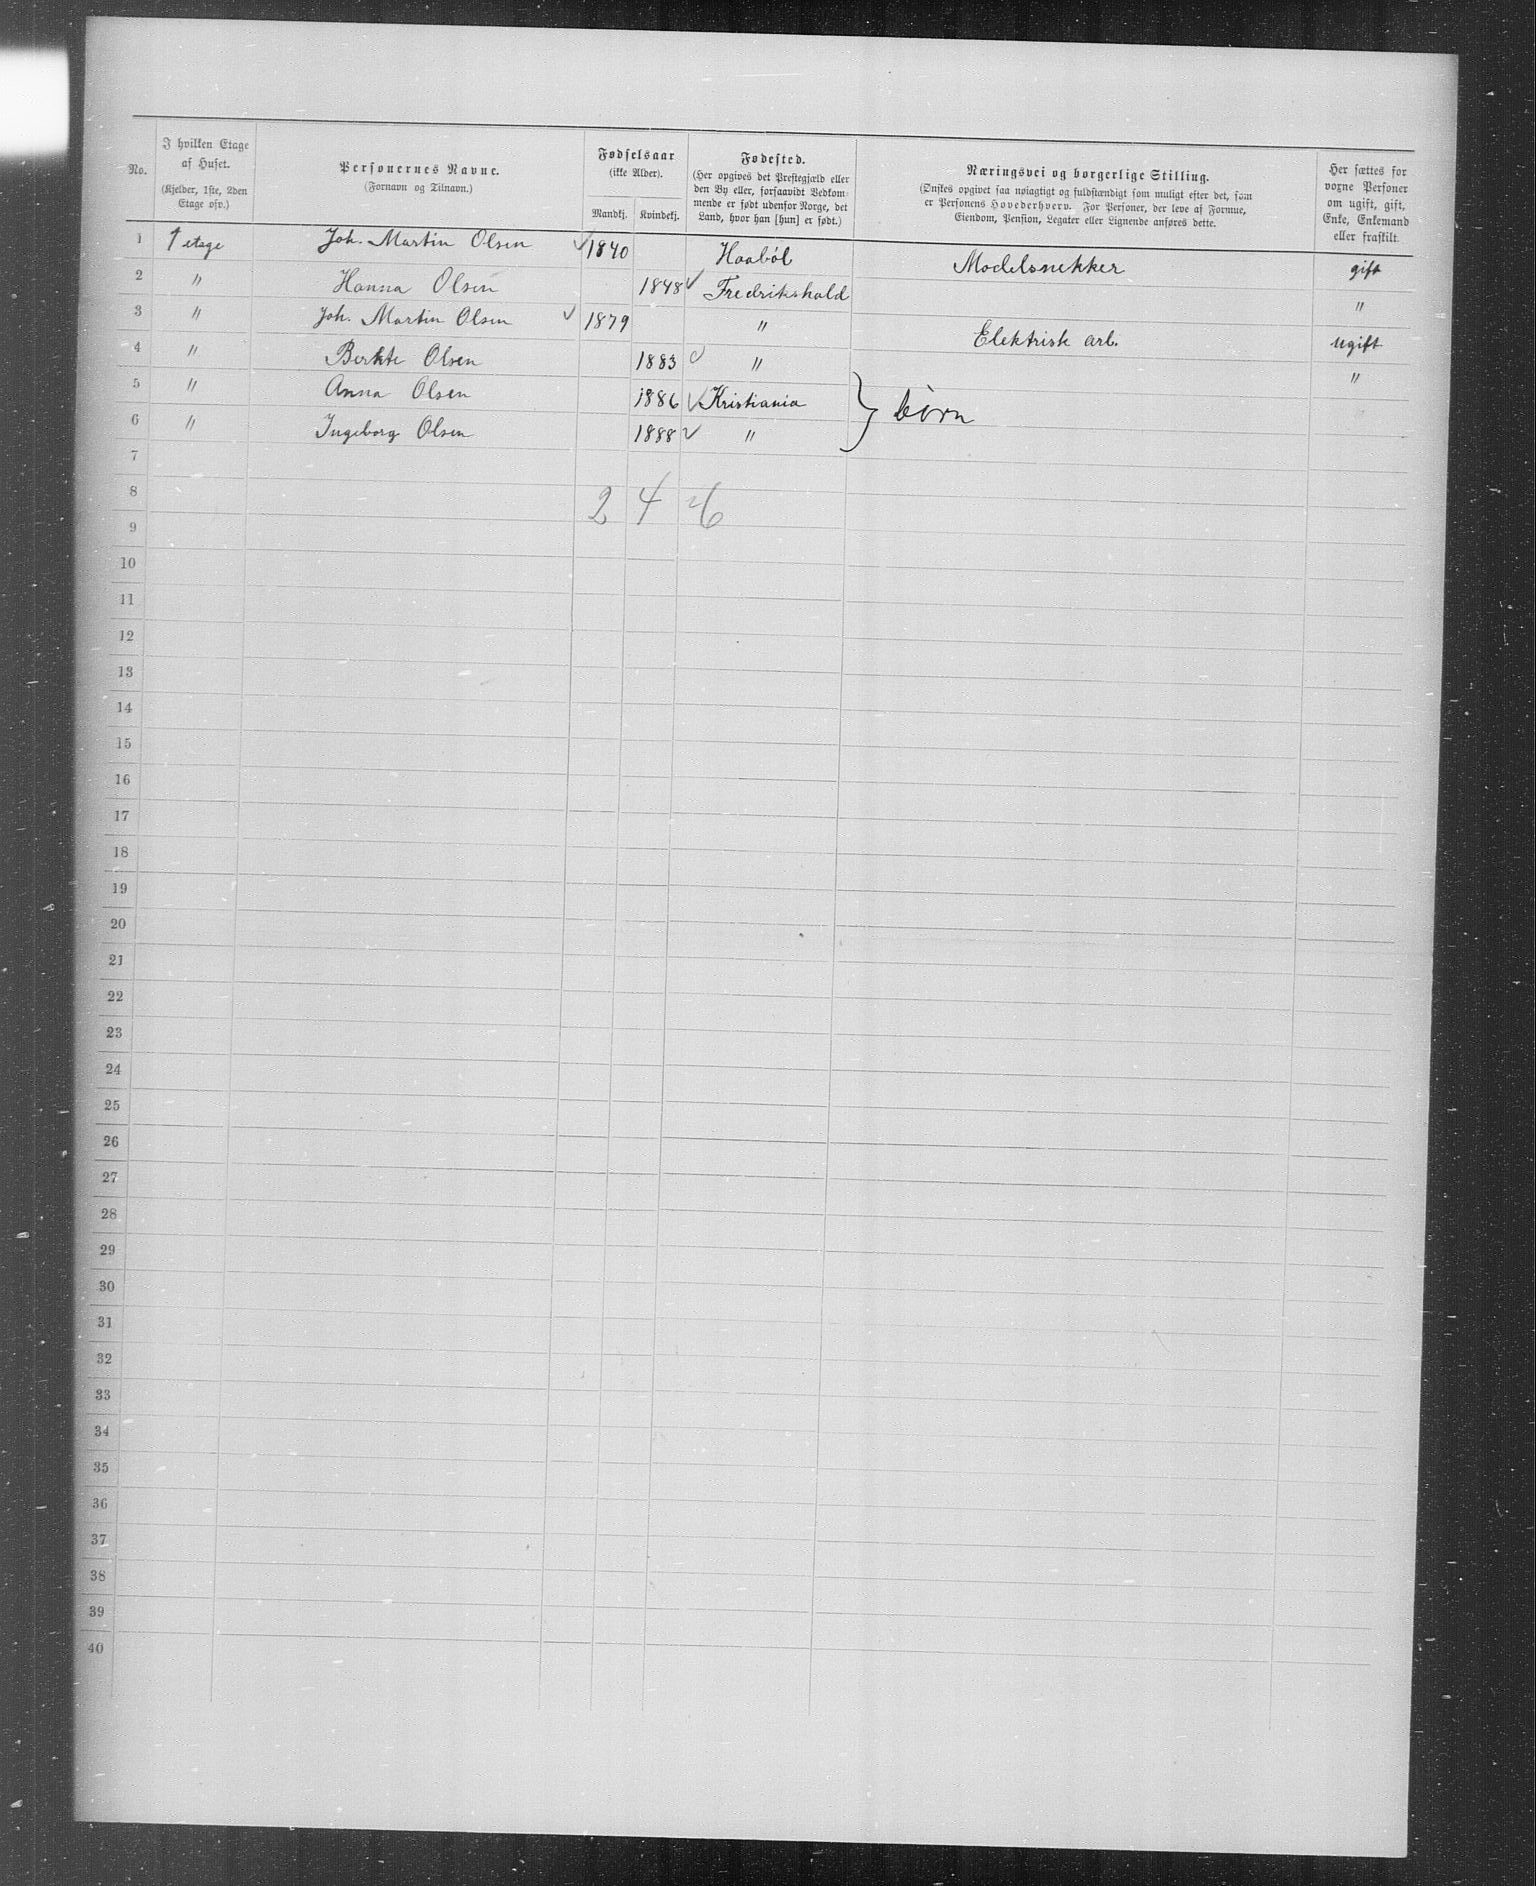 No. | I hvilken Etage af Huset. (Kjelder, 1ste, 2den Etage osv.) | Personernes Navne. (Fornavn og Tilnavn.) | Fødselsaar (ikke Alder). Mandkj. | Kvindekj. | Fødested. (Her opgives det Prestegjæld eller den By eller, forsaavidt Vedkommende er født udenfor Norge, det Land, hvor han [hun] er født.) | Næringsvei og borgerlige Stilling. (Ønskes opgivet saa nøiagtigt og fuldstændigt som muligt efter det, som er Personens Hovederhverv. For Personer, der leve af Formue, Eiendom, Pension, Legater eller Lignende anføres dette. | Her sættes for voxne Personer om ugift, gift, Enke, Enkemand eller fraskilt.
1 | 1 etage | Joh. Martin Olsen | 1840 | | Haaböl | Modelsnekker | gift
2 | " | Hanna Olsen | | 1848 | Fredrikshald | | "
3 | " | Joh. Martin Olsen | 1879 | | " | Elektrisk arb. | ugift
4 | " | Berthe Olsen | | 1883 | " | | "
5 | " | Anna Olsen | | 1886 | Kristiania | } börn
6 | " | Ingeborg Olsen | | 1888 | "
7
8 | 2 | 4 | 6
9
10
11
12
13
14
15
16
17
18
19
20
21
22
23
24
25
26
27
28
29
30
31
32
33
34
35
36
37
38
39
40